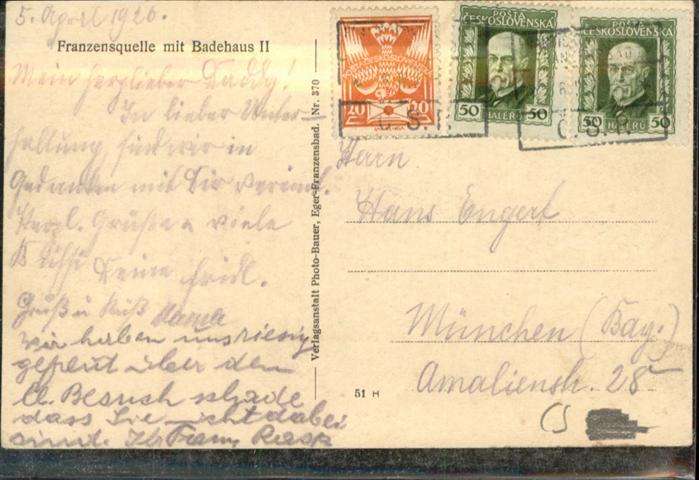 5. April 1926.
Franzensquelle mit Badehaus II
Mein herzlieber Daddy!
In lieber Unter-
haltung sind wir in
Gedanken mit Dir vereint.
Herzl. Grüße u viele
Küsse Deine Friedl.
Gruß u Kuß
wir haben uns riesig
gefreut über den
lb. Besuch schade
dass Sie nicht dabei
sind. Ihr Franz
Verlagsanstalt Photo-Bauer, Eger-Franzensbad. Nr. 370
POŠTA ČESKOSLOVENSKA
20 20
POŠTA
ČESKOSLOVENSKA
50 HALÉŘŮ 50
POŠTA
ČESKOSLOVENSKA
50 HALÉŘŮ 50
Č. S. R.
Č. S. R.
Herrn
Hans Engert
München (Bay.)
Amalienstr. 25
51 H